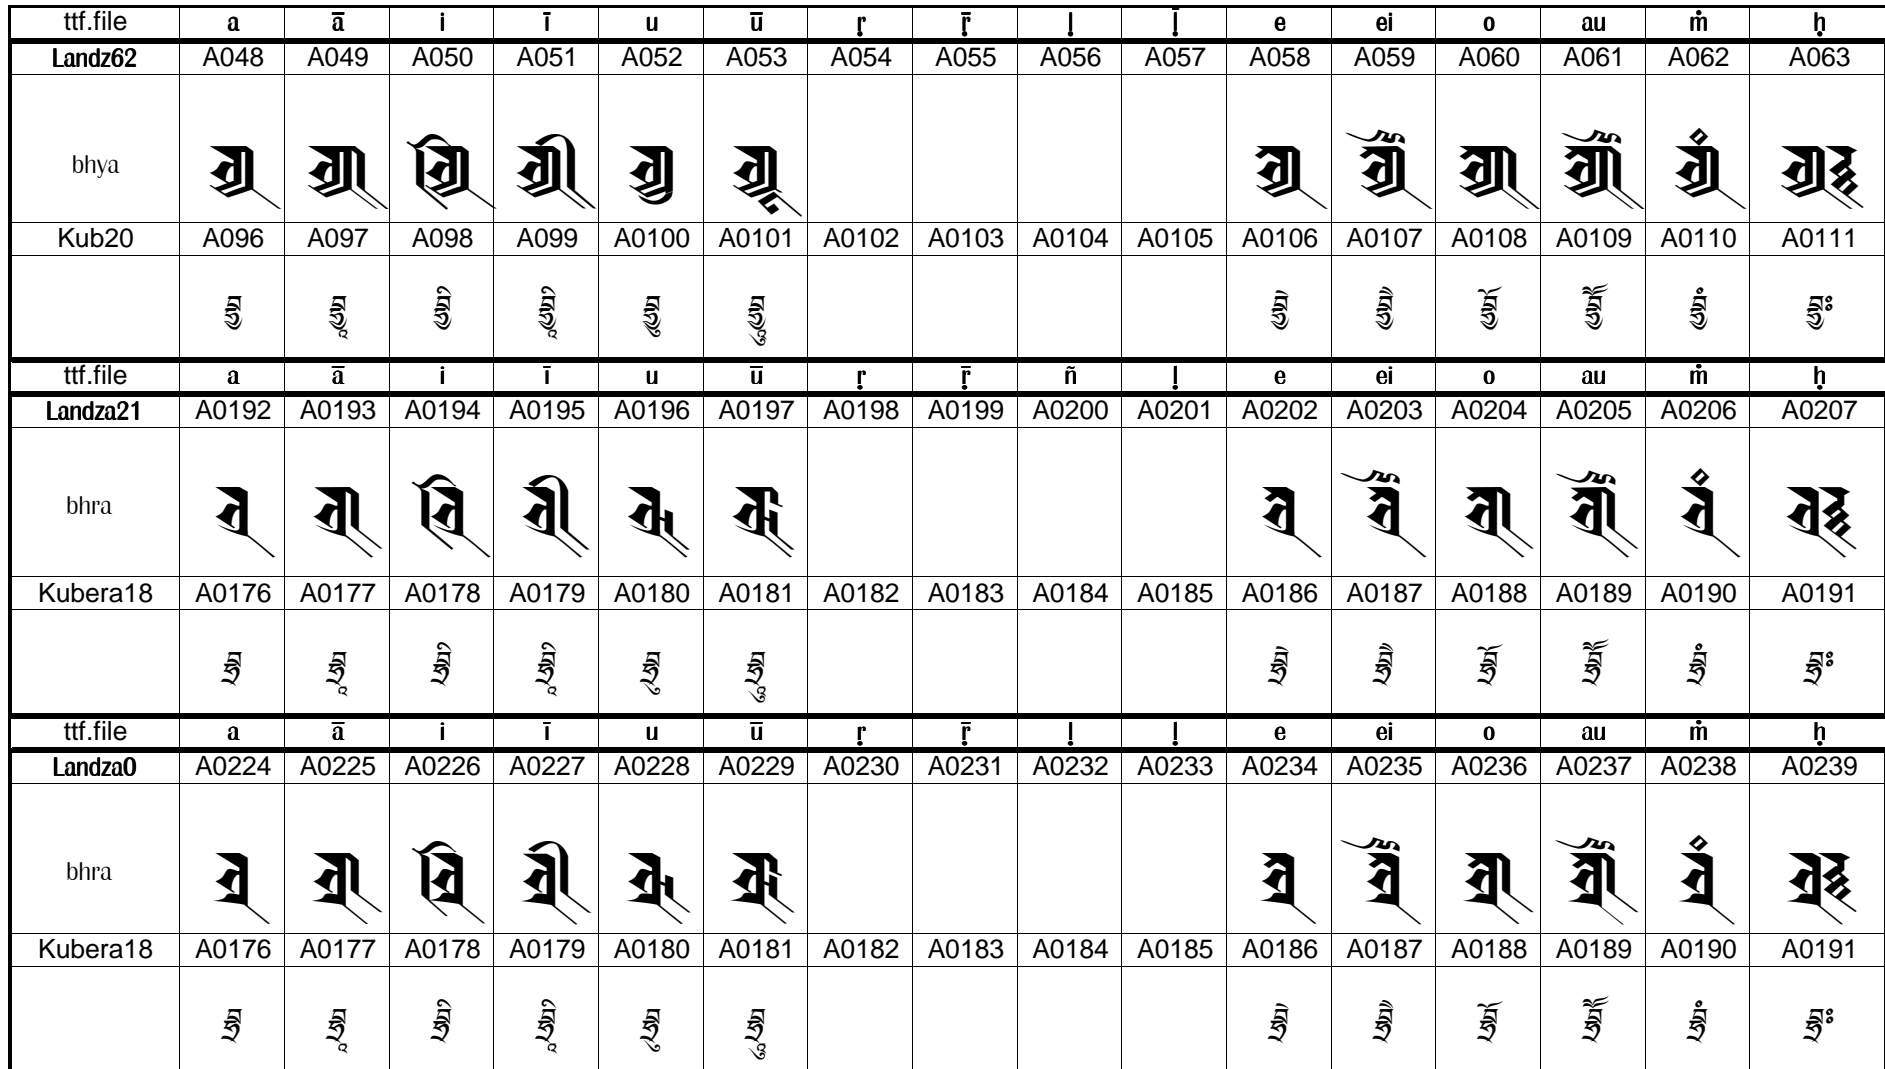 ttf.file a ā i ī u ū ṛ ṝ ḷ ḹ e ei o au ṁ ḥ
Landz62 A048 A049 A050 A051 A052 A053 A054 A055 A056 A057 A058 A059 A060 A061 A062 A063
bhya
Kub20 A096 A097 A098 A099 A0100 A0101 A0102 A0103 A0104 A0105 A0106 A0107 A0108 A0109 A0110 A0111
བྷྱ བྷྱཱ བྷྱི བྷྱཱི བྷྱུ བྷྱཱུ བྷྱེ བྷྱཻ བྷྱོ བྷྱཽ བྷྱཾ བྷྱཿ
ttf.file a ā i ī u ū ṛ ṝ ñ ḷ e ei o au ṁ ḥ
Landza21 A0192 A0193 A0194 A0195 A0196 A0197 A0198 A0199 A0200 A0201 A0202 A0203 A0204 A0205 A0206 A0207
bhra
Kubera18 A0176 A0177 A0178 A0179 A0180 A0181 A0182 A0183 A0184 A0185 A0186 A0187 A0188 A0189 A0190 A0191
བྷྲ བྷྲཱ བྷྲི བྷྲཱི བྷྲུ བྷྲཱུ བྷྲེ བྷྲཻ བྷྲོ བྷྲཽ བྷྲཾ བྷྲཿ
ttf.file a ā i ī u ū ṛ ṝ ḷ ḷ e ei o au ṁ ḥ
Landza0 A0224 A0225 A0226 A0227 A0228 A0229 A0230 A0231 A0232 A0233 A0234 A0235 A0236 A0237 A0238 A0239
bhra
Kubera18 A0176 A0177 A0178 A0179 A0180 A0181 A0182 A0183 A0184 A0185 A0186 A0187 A0188 A0189 A0190 A0191
བྷྲ བྷྲཱ བྷྲི བྷྲཱི བྷྲུ བྷྲཱུ བྷྲེ བྷྲཻ བྷྲོ བྷྲཽ བྷྲཾ བྷྲཿ